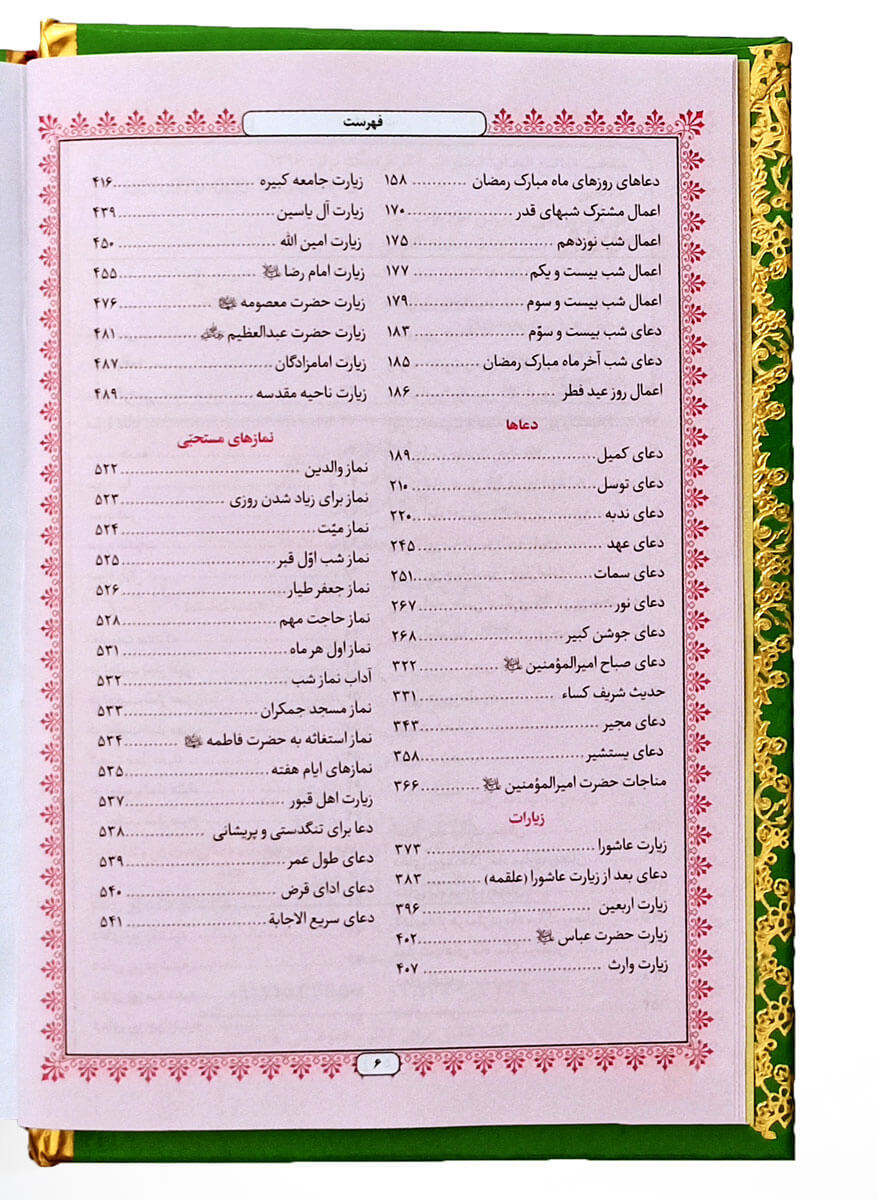 فهرست
دعاهای روزهای ماه مبارک رمضان ........... ۱۵۸
اعمال مشترک شبهای قدر ................ ۱۷۰
اعمال شب نوزدهم ................ ۱۷۵
اعمال شب بیست و یکم ................ ۱۷۷
اعمال شب بیست و سوم ................ ۱۷۹
دعای شب بیست و سوّم ................ ۱۸۳
دعای شب آخر ماه مبارک رمضان ........... ۱۸۵
اعمال روز عید فطر ................ ۱۸۶
دعاها
دعای کمیل ................ ۱۸۹
دعای توسل ................ ۲۱۰
دعای ندبه ................ ۲۲۰
دعای عهد ................ ۲۴۵
دعای سمات ................ ۲۵۱
دعای نور ................ ۲۶۷
دعای جوشن کبیر ................ ۲۶۸
دعای صباح امیرالمؤمنین ........... ۳۲۲
حدیث شریف کساء ................ ۳۳۱
دعای مجیر ................ ۳۴۳
دعای یستشیر ................ ۳۵۸
مناجات حضرت امیرالمؤمنین ........ ۳۶۶
زیارات
زیارت عاشورا ................ ۳۷۳
دعای بعد از زیارت عاشورا (علقمه) ........... ۳۸۳
زیارت اربعین ................ ۳۹۶
زیارت حضرت عباس ................ ۴۰۲
زیارت وارث ................ ۴۰۷
زیارت جامعه کبیره ................ ۴۱۶
زیارت آل یاسین ................ ۴۳۹
زیارت امین الله ................ ۴۵۰
زیارت امام رضا ................ ۴۵۵
زیارت حضرت معصومه ........... ۴۷۶
زیارت حضرت عبدالعظیم ........... ۴۸۱
زیارت امامزادگان ................ ۴۸۷
زیارت ناحیه مقدسه ................ ۴۸۹
نمازهای مستحبّی
نماز والدین ................ ۵۲۲
نماز برای زیاد شدن روزی ........... ۵۲۳
نماز میّت ................ ۵۲۴
نماز شب اوّل قبر ................ ۵۲۵
نماز جعفر طیار ................ ۵۲۶
نماز حاجت مهم ................ ۵۲۸
نماز اول هر ماه ................ ۵۳۱
آداب نماز شب ................ ۵۳۲
نماز مسجد جمکران ................ ۵۳۳
نماز استغاثه به حضرت فاطمه ........... ۵۳۴
نمازهای ایام هفته ................ ۵۳۵
زیارت اهل قبور ................ ۵۳۷
دعا برای تنگدستی و پریشانی ........... ۵۳۸
دعای طول عمر ................ ۵۳۹
دعای ادای قرض ................ ۵۴۰
دعای سریع الاجابة ................ ۵۴۱
۶